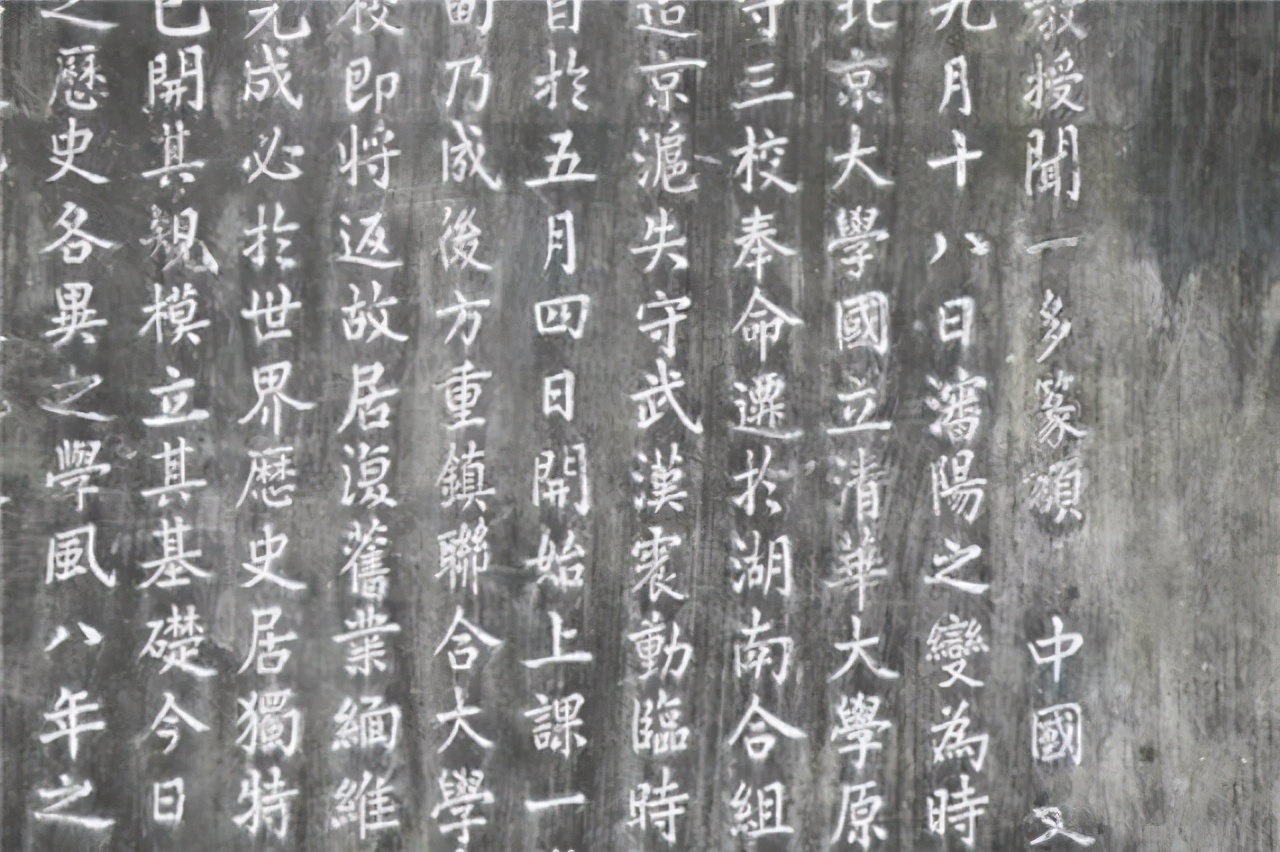 教授聞一多篆額 中國文
九月十八日瀋陽之變為時
北京大學國立清華大學原
守三校奉命遷於湖南合組
迨京滬失守武漢震動臨時
自於五月四日開始上課一
勛乃成後方重鎮聯合大學
校即将返故居復舊業緬維
完成必於世界歷史居獨特
已開其規模立其基礎今日
之歷史各異之學風八年之